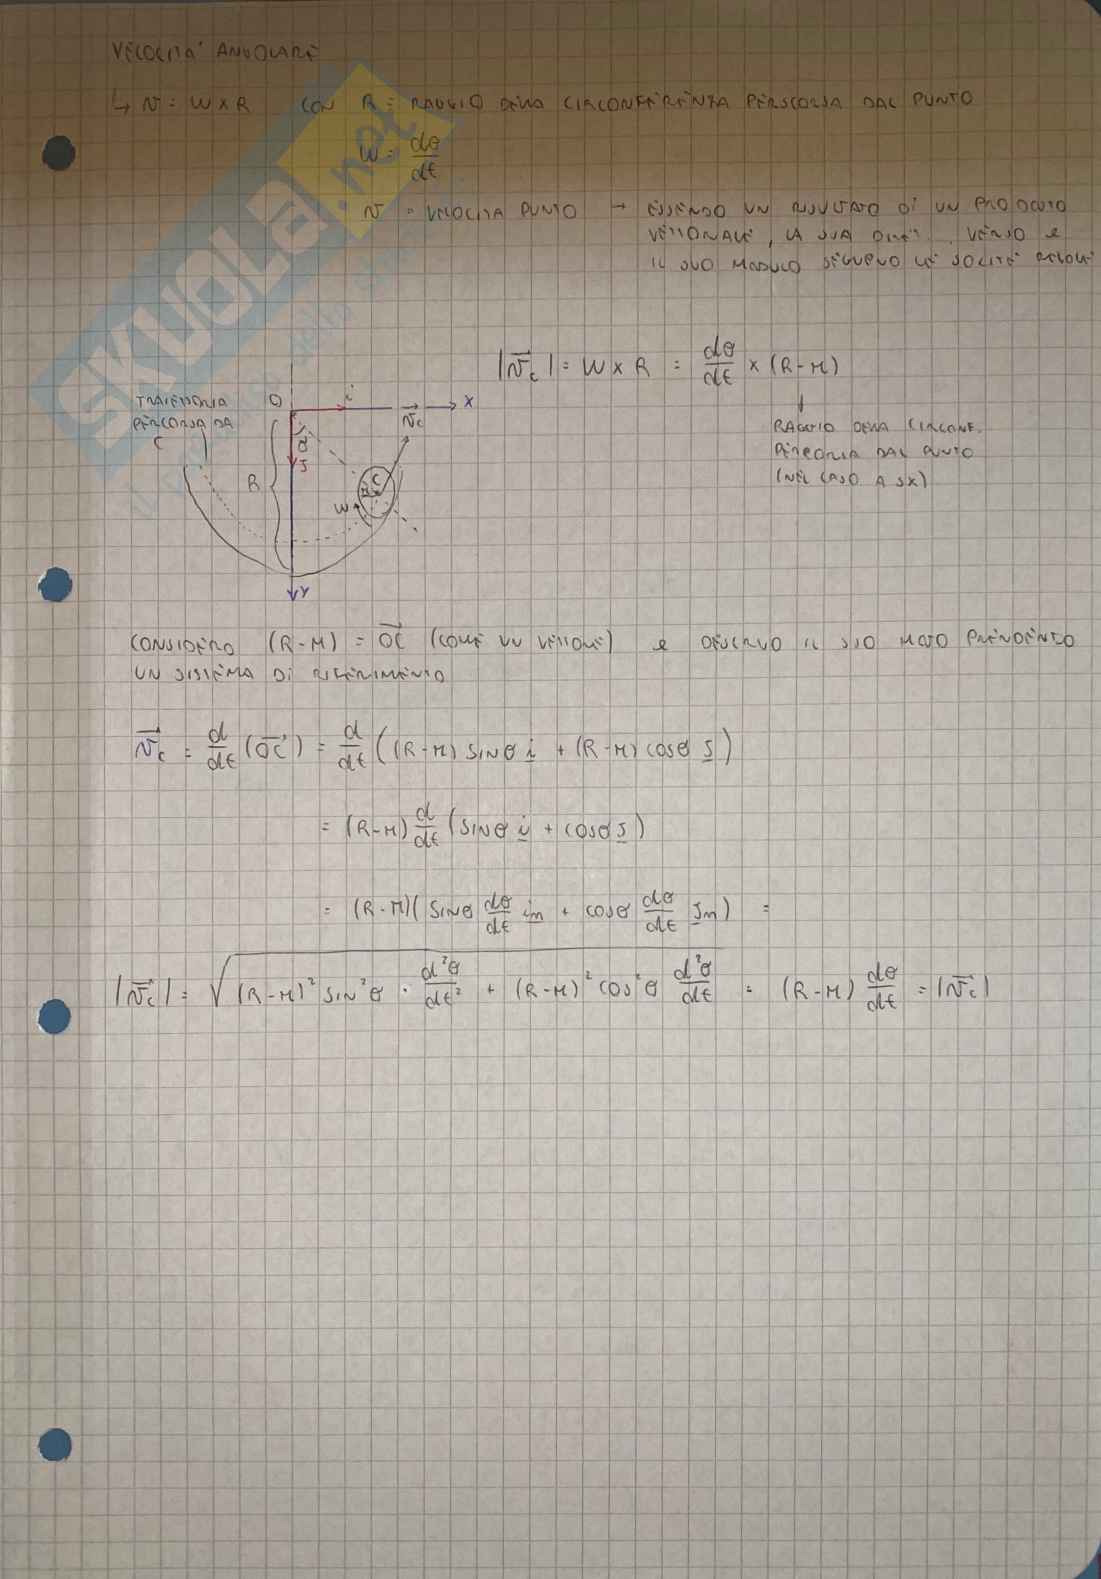 VELOCITA' ANGOLARE
↳ v = W x R CON R = RAGGIO DELLA CIRCONFERENZA PERSCORSA DAL PUNTO
W = dθ/dt
v = VELOCITA PUNTO → ESSENDO UN RISULTATO DI UN PRODOTTO
VETTORIALE, LA SUA VERSO e
IL SUO MODULO SEGUONO LE SOLITE REGOLE
|v⃗c| = W x R = dθ/dt x (R-r)
TRAIETTORIA O i v⃗c x
PERCORSA DA
C
RAGGIO DELLA CIRCONF.
PERCORSA DAL PUNTO
(NEL CASO A SX)
θ
J
R
C
r
W
Y
CONSIDERO (R-r) = OC⃗ (COME UN VETTORE) e OSSERVO IL SUO MOTO PRENDENDO
UN SISTEMA DI RIFERIMENTO
v⃗c = d/dt (OC⃗) = d/dt ((R-r) sinθ i + (R-r) cosθ J)
= (R-r) d/dt (sinθ i + cosθ J)
= (R-r)(sinθ dθ/dt in + cosθ dθ/dt Jn) =
|v⃗c| = √((R-r)² sin²θ · d²θ/dt² + (R-r)² cos²θ d²θ/dt) = (R-r) dθ/dt = |v⃗c|
SKUOLA.net